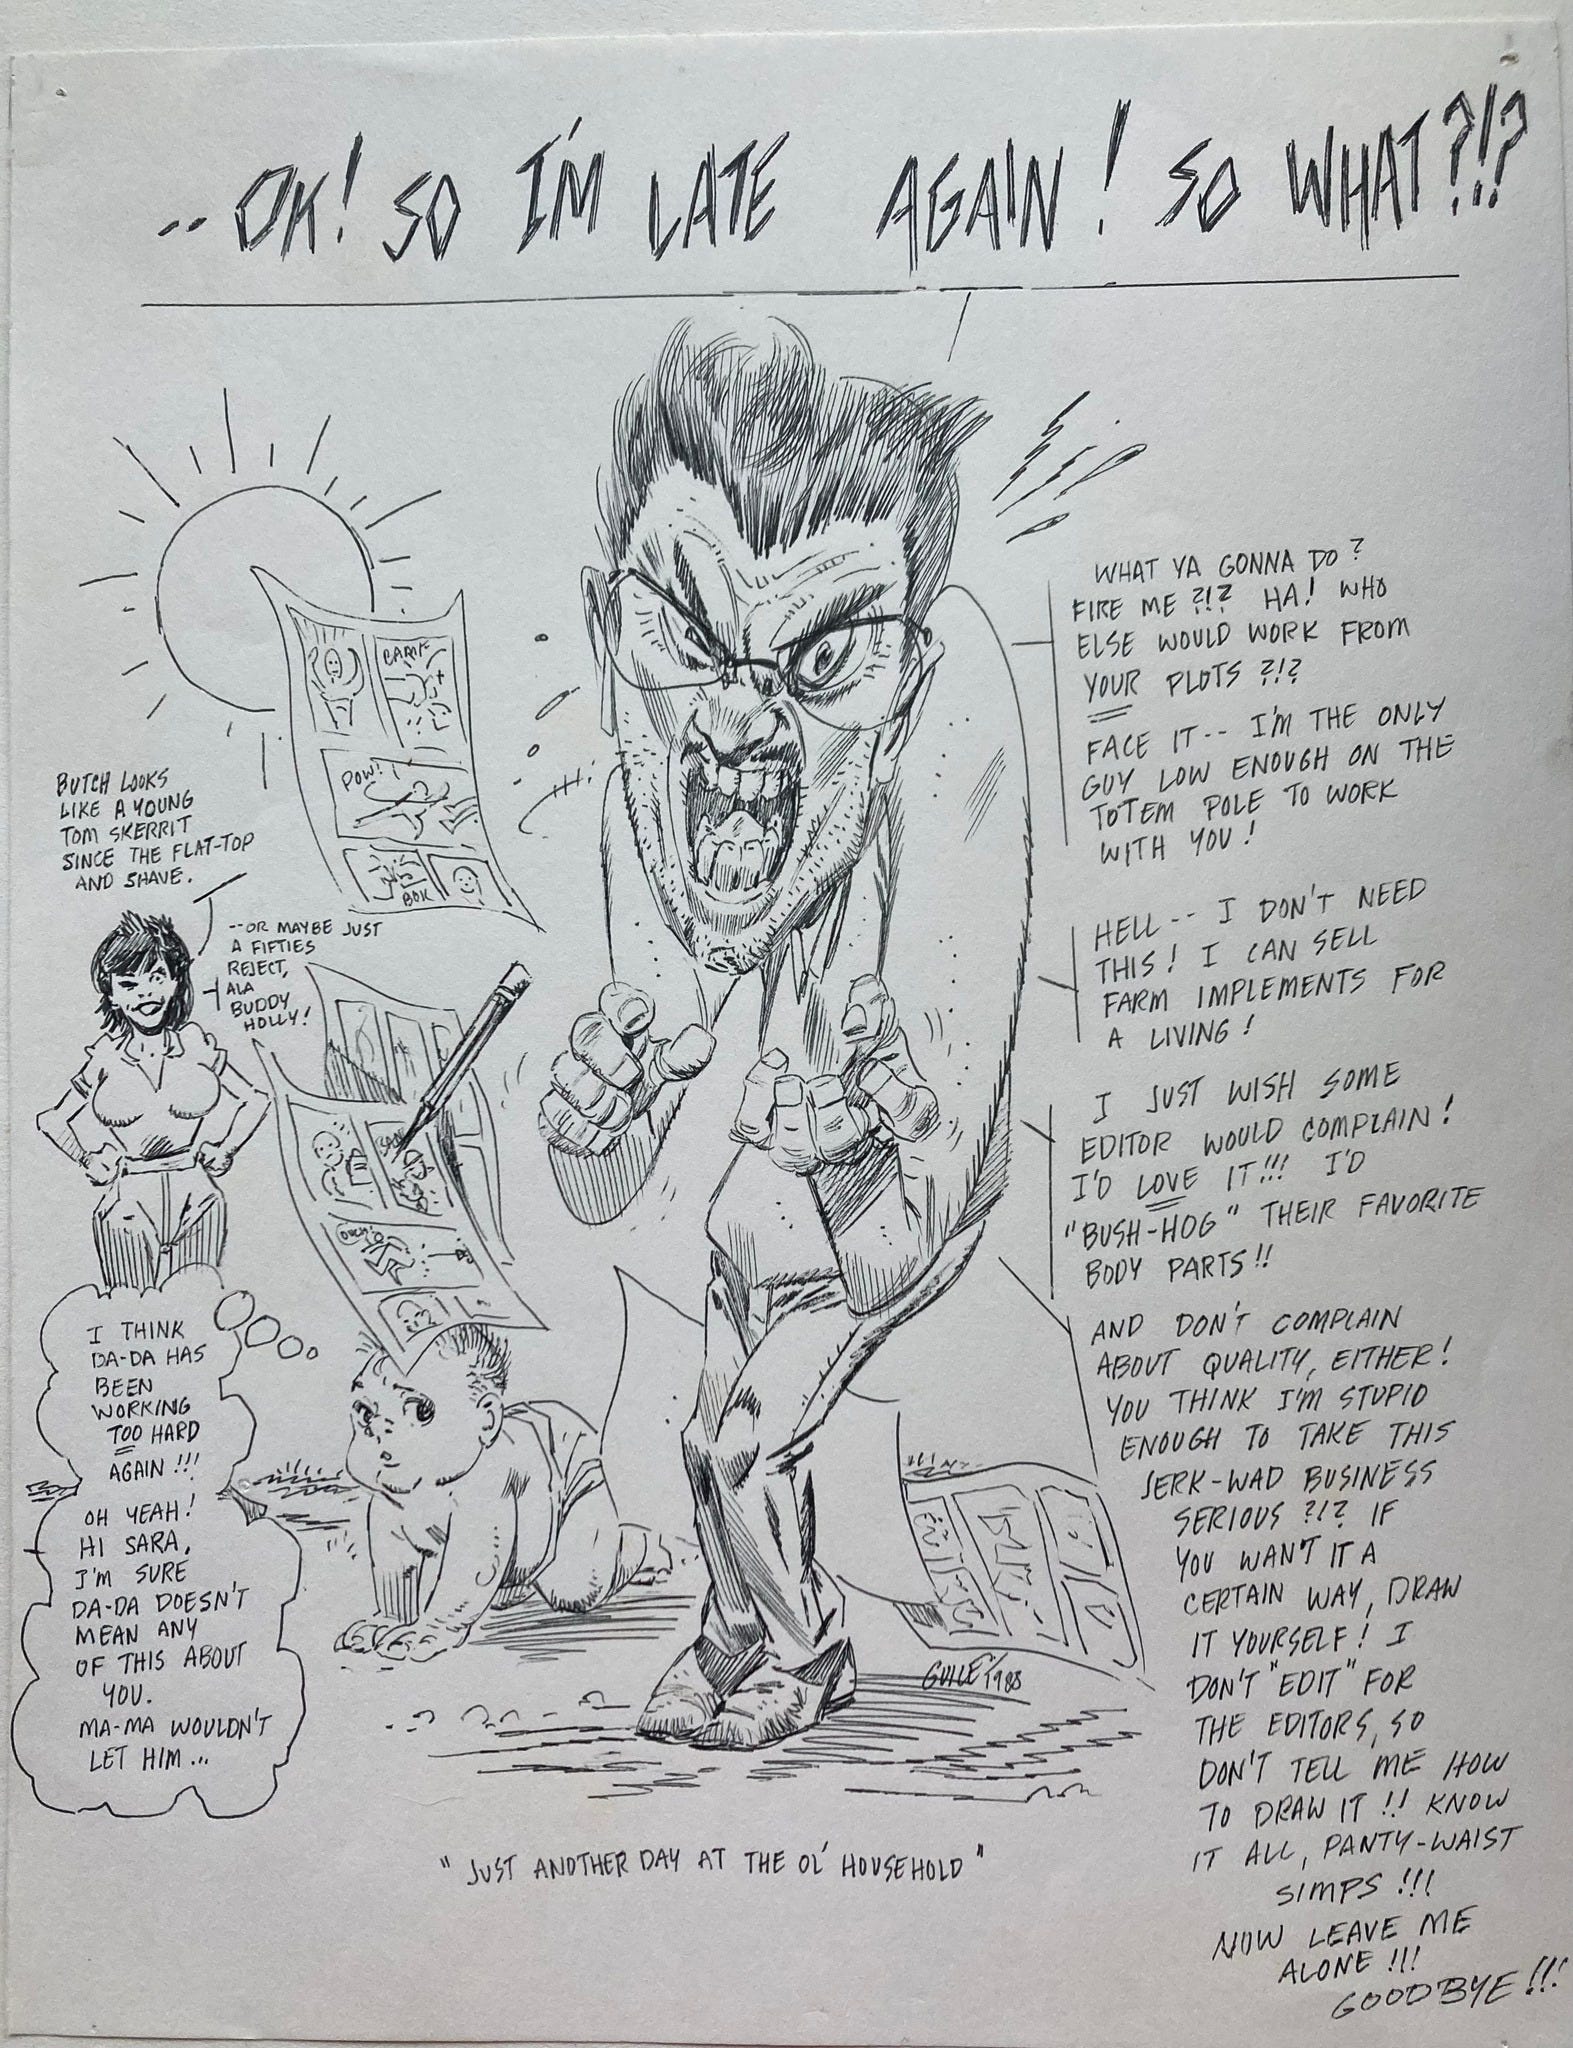 -- OK! SO I'M LATE AGAIN! SO WHAT?!?
WHAT YA GONNA DO?
FIRE ME ?!? HA! WHO
ELSE WOULD WORK FROM
YOUR PLOTS ?!?
FACE IT -- I'M THE ONLY
GUY LOW ENOUGH ON THE
TOTEM POLE TO WORK
WITH YOU!
HELL -- I DON'T NEED
THIS! I CAN SELL
FARM IMPLEMENTS FOR
A LIVING!
I JUST WISH SOME
EDITOR WOULD COMPLAIN!
I'D LOVE IT!!! I'D
"BUSH-HOG" THEIR FAVORITE
BODY PARTS!!
AND DON'T COMPLAIN
ABOUT QUALITY, EITHER!
YOU THINK I'M STUPID
ENOUGH TO TAKE THIS
JERK-WAD BUSINESS
SERIOUS ?!? IF
YOU WAN'T IT A
CERTAIN WAY, DRAW
IT YOURSELF! I
DON'T "EDIT" FOR
THE EDITORS, SO
DON'T TELL ME HOW
TO DRAW IT!! KNOW
IT ALL, PANTY-WAIST
SIMPS!!!
NOW LEAVE ME
ALONE!!!
GOODBYE!!!
BUTCH LOOKS
LIKE A YOUNG
TOM SKERRIT
SINCE THE FLAT-TOP
AND SHAVE.
--OR MAYBE JUST
A FIFTIES
REJECT,
ALA
BUDDY
HOLLY!
POW!
BOK
OUCH!
I THINK
DA-DA HAS
BEEN
WORKING
TOO HARD
AGAIN!!!
OH YEAH!
HI SARA,
I'M SURE
DA-DA DOESN'T
MEAN ANY
OF THIS ABOUT
YOU.
MA-MA WOULDN'T
LET HIM...
"JUST ANOTHER DAY AT THE OL' HOUSEHOLD"